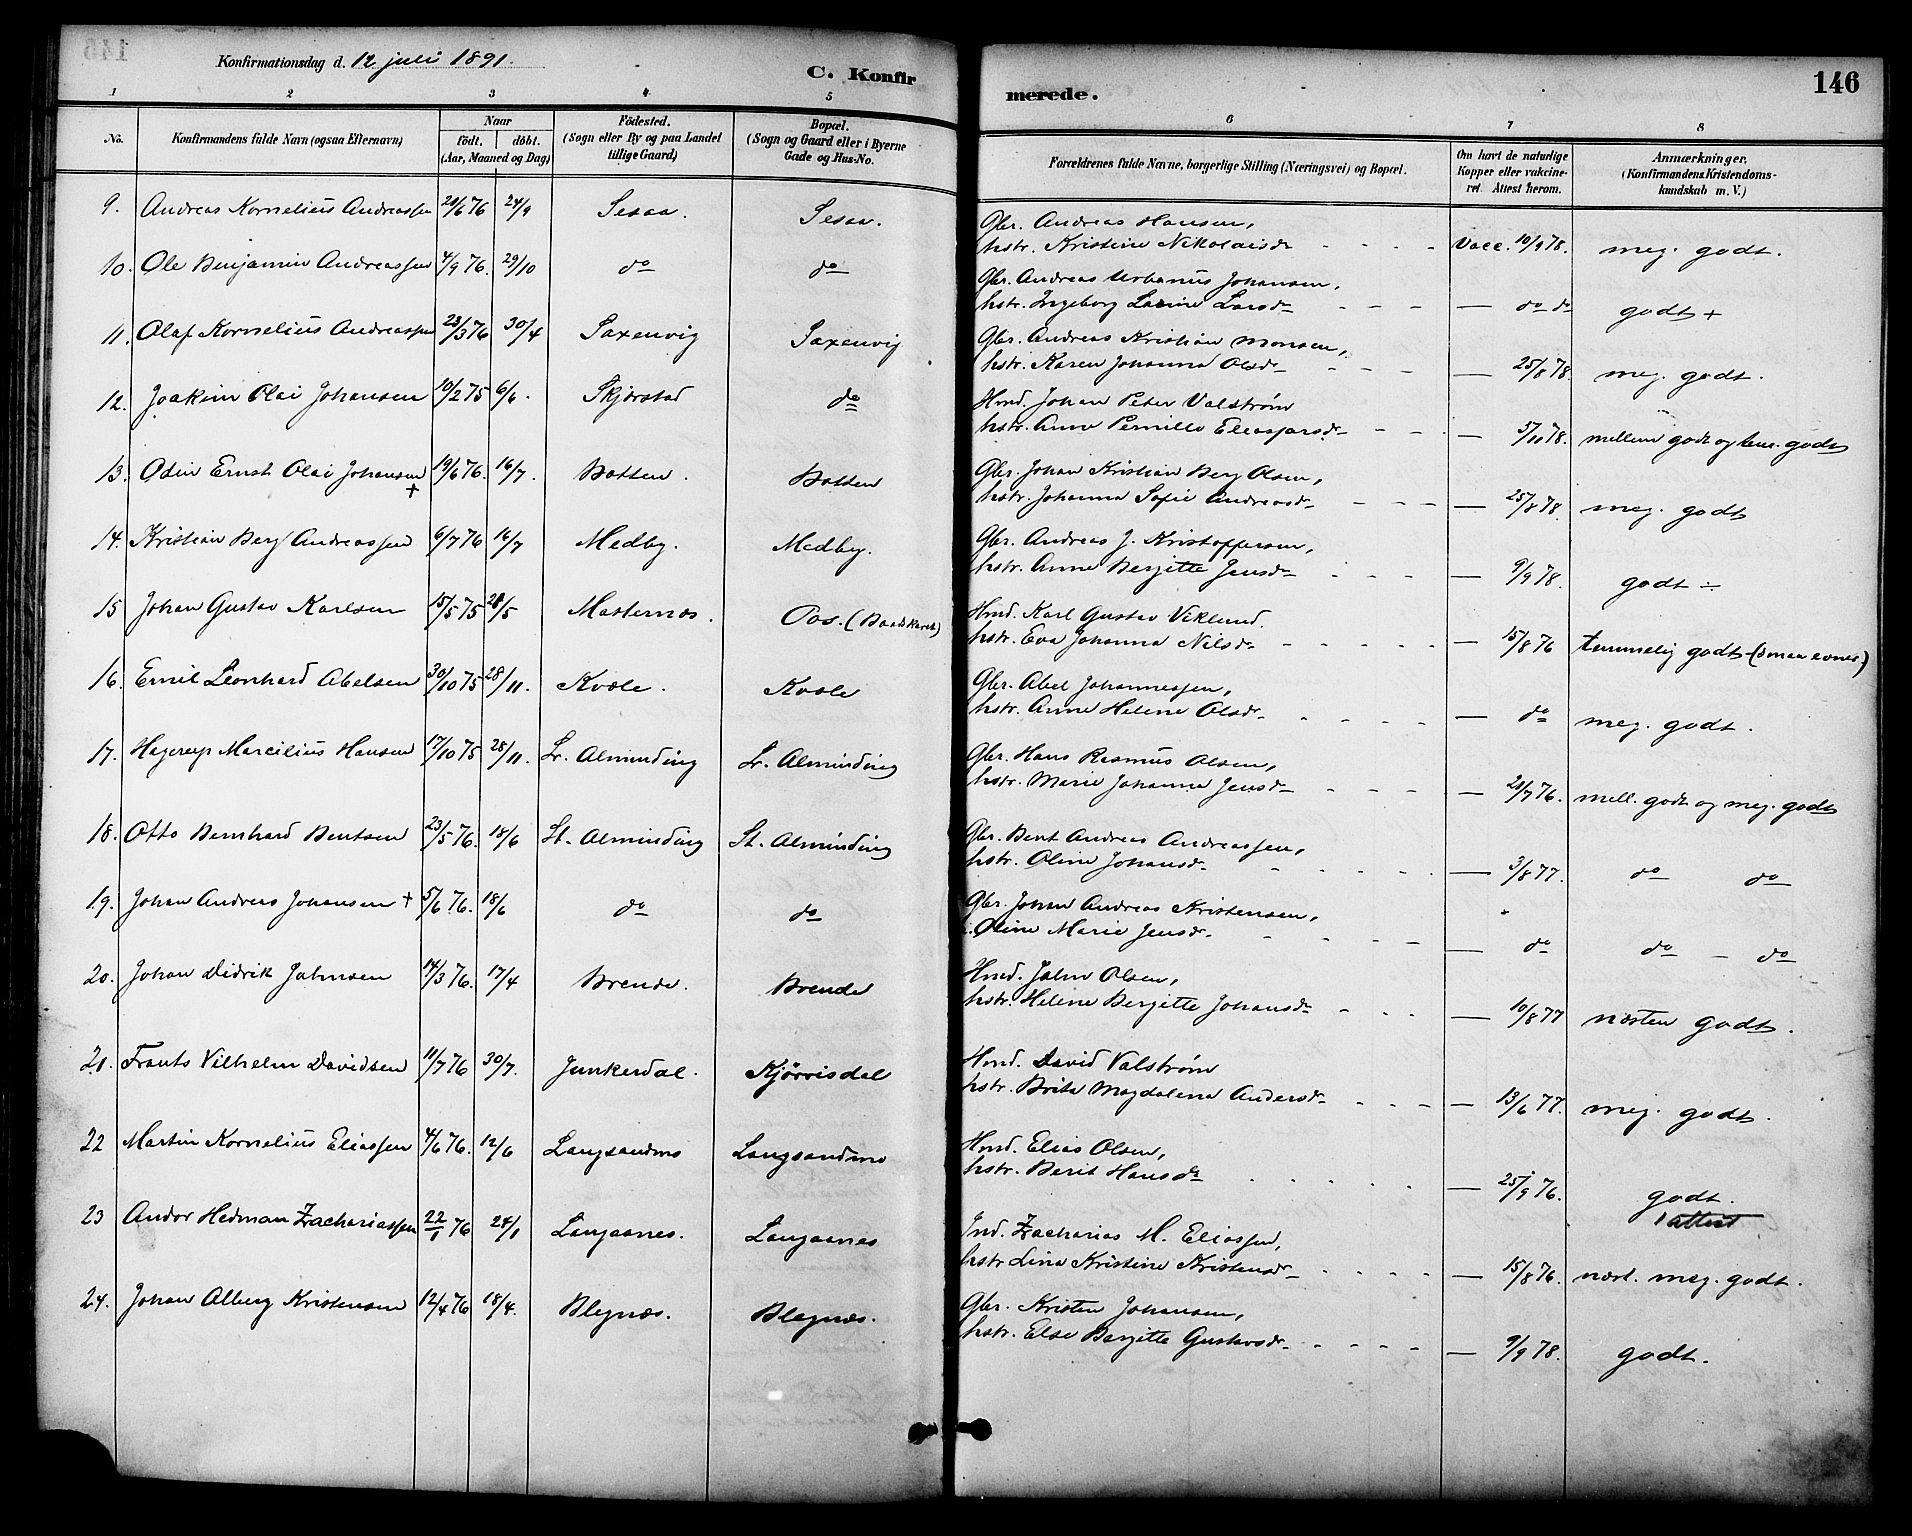 Konfirmationsdag d. 12 juli 1891.
C. Konfir
merede.
146
1 2 3 4 5 6 7 8
No.
Konfirmandens fulde Navn (ogsaa Efternavn)
Naar
födt. döbt.
(Aar, Maaned og Dag)
Födested.
(Sogn eller By og paa Landet
tillige Gaard)
Bopæl.
(Sogn og Gaard eller i Byerne
Gade og Hus-No.
Forældrenes fulde Navne, borgerlige Stilling (Næringsvei) og Bopæl.
Om havt de naturlige
Kopper eller vakcine-
ret. Attest herom.
Anmærkninger.
(Konfirmandens Kristendoms-
kundskab m. V.)
9. Andreas Kornelius Andreassen 20/6 76 24/9 Sesaa. Sesaa. Gbr. Andreas Hansen,
hstr. Kristine Nikolaisdr Vacc. 10/9 78. meg. godt.
10. Ole Benjamin Andreassen 4/9 76. 29/10 do do Gbr. Andreas Urbanus Johansen,
hstr. Ingeborg Larine Larsdr — do do godt +
11. Olaf Kornelius Andreassen 23/3 76 30/4 Saxenvig Saxenvig Gbr. Andreas Kristian Monsen,
hstr. Karen Johanna Olsdr — 25/8 78. meg. godt.
12. Joakim Olai Johansen 10/2 75 6/6. Skjerstad do Hmd. Johan Peter Valstrøm
hstr. Anne Pernille Eliasarsdr — 3/10 78. mellem godt og tem. godt
13. Odin Ernst Olai Johansen + 19/6 76. 16/7. Botten. Botten Gbr. Johan Kristian Berg Olsen,
hstr. Johanna Sofie Andreasdr — 25/8 78. meg. godt
14. Kristian Berg Andreassen 6/7 76 16/7 Medby. Medby. Gbr. Andreas J. Kristoffersen,
hstr. Anne Bergitte Jensdr — 9/9 78. godt ÷
15 Johan Gustav Karlsen 15/5 75 28/5 Masternes. Oos. (Baadskaret) Hmd. Karl Gustav Viklund.
hstr. Eva Johanna Nilsdr — 15/8 76 temmelig godt (smaa evner)
16. Emil Leonhard Abelsen 30/10 75 28/11. Kvæle. Kvæle Gbr. Abel Johannessen,
hstr. Anne Helene Olsdr — do meg. godt.
17. Hagerup Marcilius Hansen 17/10 75 28/11. Lr. Alminding Lr. Alminding Gbr. Hans Rasmus Olsen,
hstr. Marie Johanna Jensdr — 21/7 76. mell. godt og meg. godt
18. Otto Bernhard Bentsen 23/5 76. 18/6 St. Alminding St. Alminding Gbr. Bent Andreas Andreassen,
hstr. Oline Johansdr — 3/8 77. do do
19. Johan Andreas Johansen + 5/6 76. 18/6 do do Gbr. Johan Andreas Kristensen,
Oline Marie Jensdr — do do — do
20. Johan Didrik Jahnsen 14/3 76. 17/4 Brende. Brende Hmd. Jahn Olsen,
hstr. Helene Bergitte Johansdr — 10/8 77 næsten godt.
21. Frants Vilhelm Davidsen 11/7 76 30/7. Junkerdal. Kjörrisdal Hmd. David Valstrøm
hstr. Brita Magdalena Andersdr — 13/6 77. meg. godt.
22 Martin Kornelius Eliassen 4/6 76. 12/6 Langsandmo Langsandmo Hmd. Elias Olsen,
hstr. Berit Hansdr — 25/9 76. godt.
1 attest
23 Andor Hedman Zachariassen 22/1 76 24/1 Langaanes. Langaanes Ind. Zacharias M. Eliassen,
hstr Lina Kristine Kristensdr — 15/8 76. næst. meg. godt.
24. Johan Alberg Kristensen 12/4 76 18/4. Blegnæs. Blegnæs. Gbr. Kristen Johansen,
hstr. Else Bergitte Gustavsdr — 9/9 78. godt.